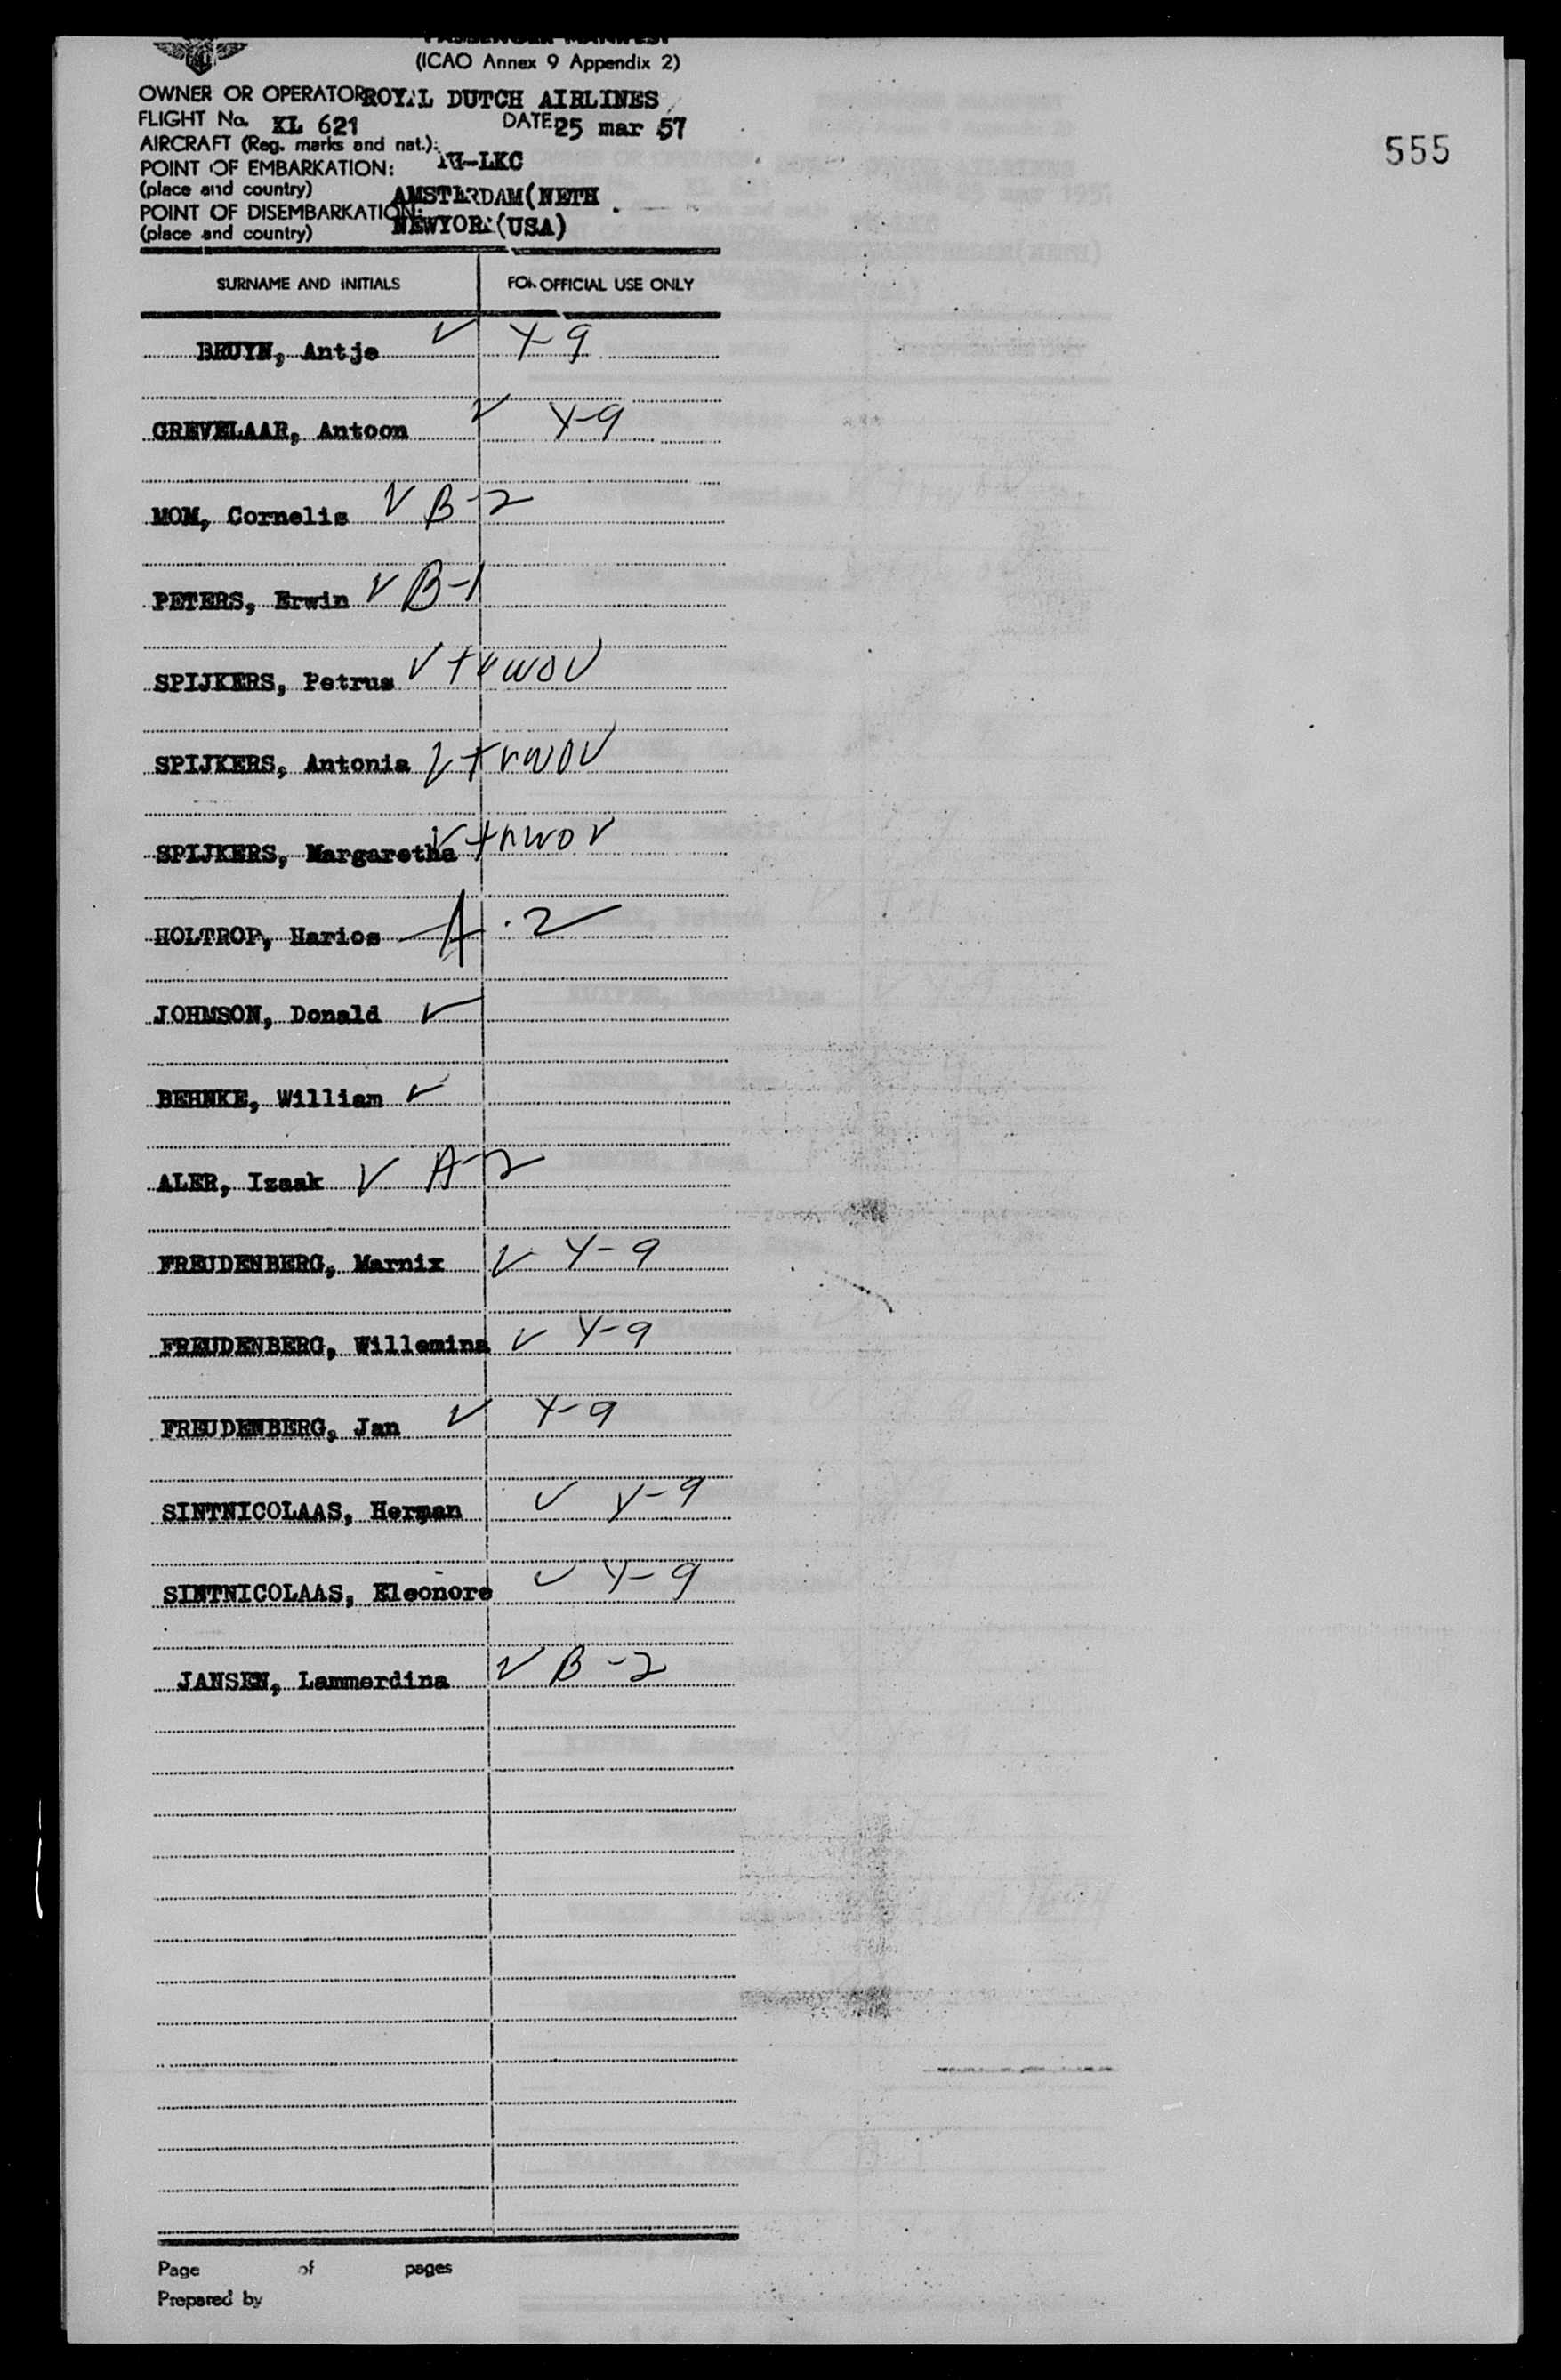 PASSENGER MANIFEST
(ICAO Annex 9 Appendix 2)
555
OWNER OR OPERATOR ROYAL DUTCH AIRLINES
FLIGHT No. KL 621 DATE 25 mar 57
AIRCRAFT (Reg. marks and nat.): PH-LKC
POINT OF EMBARKATION:
(place and country) AMSTERDAM(NETH
POINT OF DISEMBARKATION:
(place and country) NEWYORK(USA)
SURNAME AND INITIALS FOR OFFICIAL USE ONLY
BRUYN, Antje ✓ Y-9
GREVELAAR, Antoon ✓ Y-9
MOM, Cornelis ✓ B-2
PETERS, Erwin ✓ B-1
SPIJKERS, Petrus ✓
SPIJKERS, Antonia ✓
SPIJKERS, Margaretha ✓
HOLTROP, Harios A-2
JOHMSON, Donald ✓
BEHNKE, William ✓
ALER, Izaak ✓ A-2
FREUDENBERG, Marnix ✓ Y-9
FREUDENBERG, Willemina ✓ Y-9
FREUDENBERG, Jan ✓ Y-9
SINTNICOLAAS, Herman ✓ Y-9
SINTNICOLAAS, Eleonore ✓ Y-9
JANSEN, Lammerdina ✓ B-2
Page of pages
Prepared by